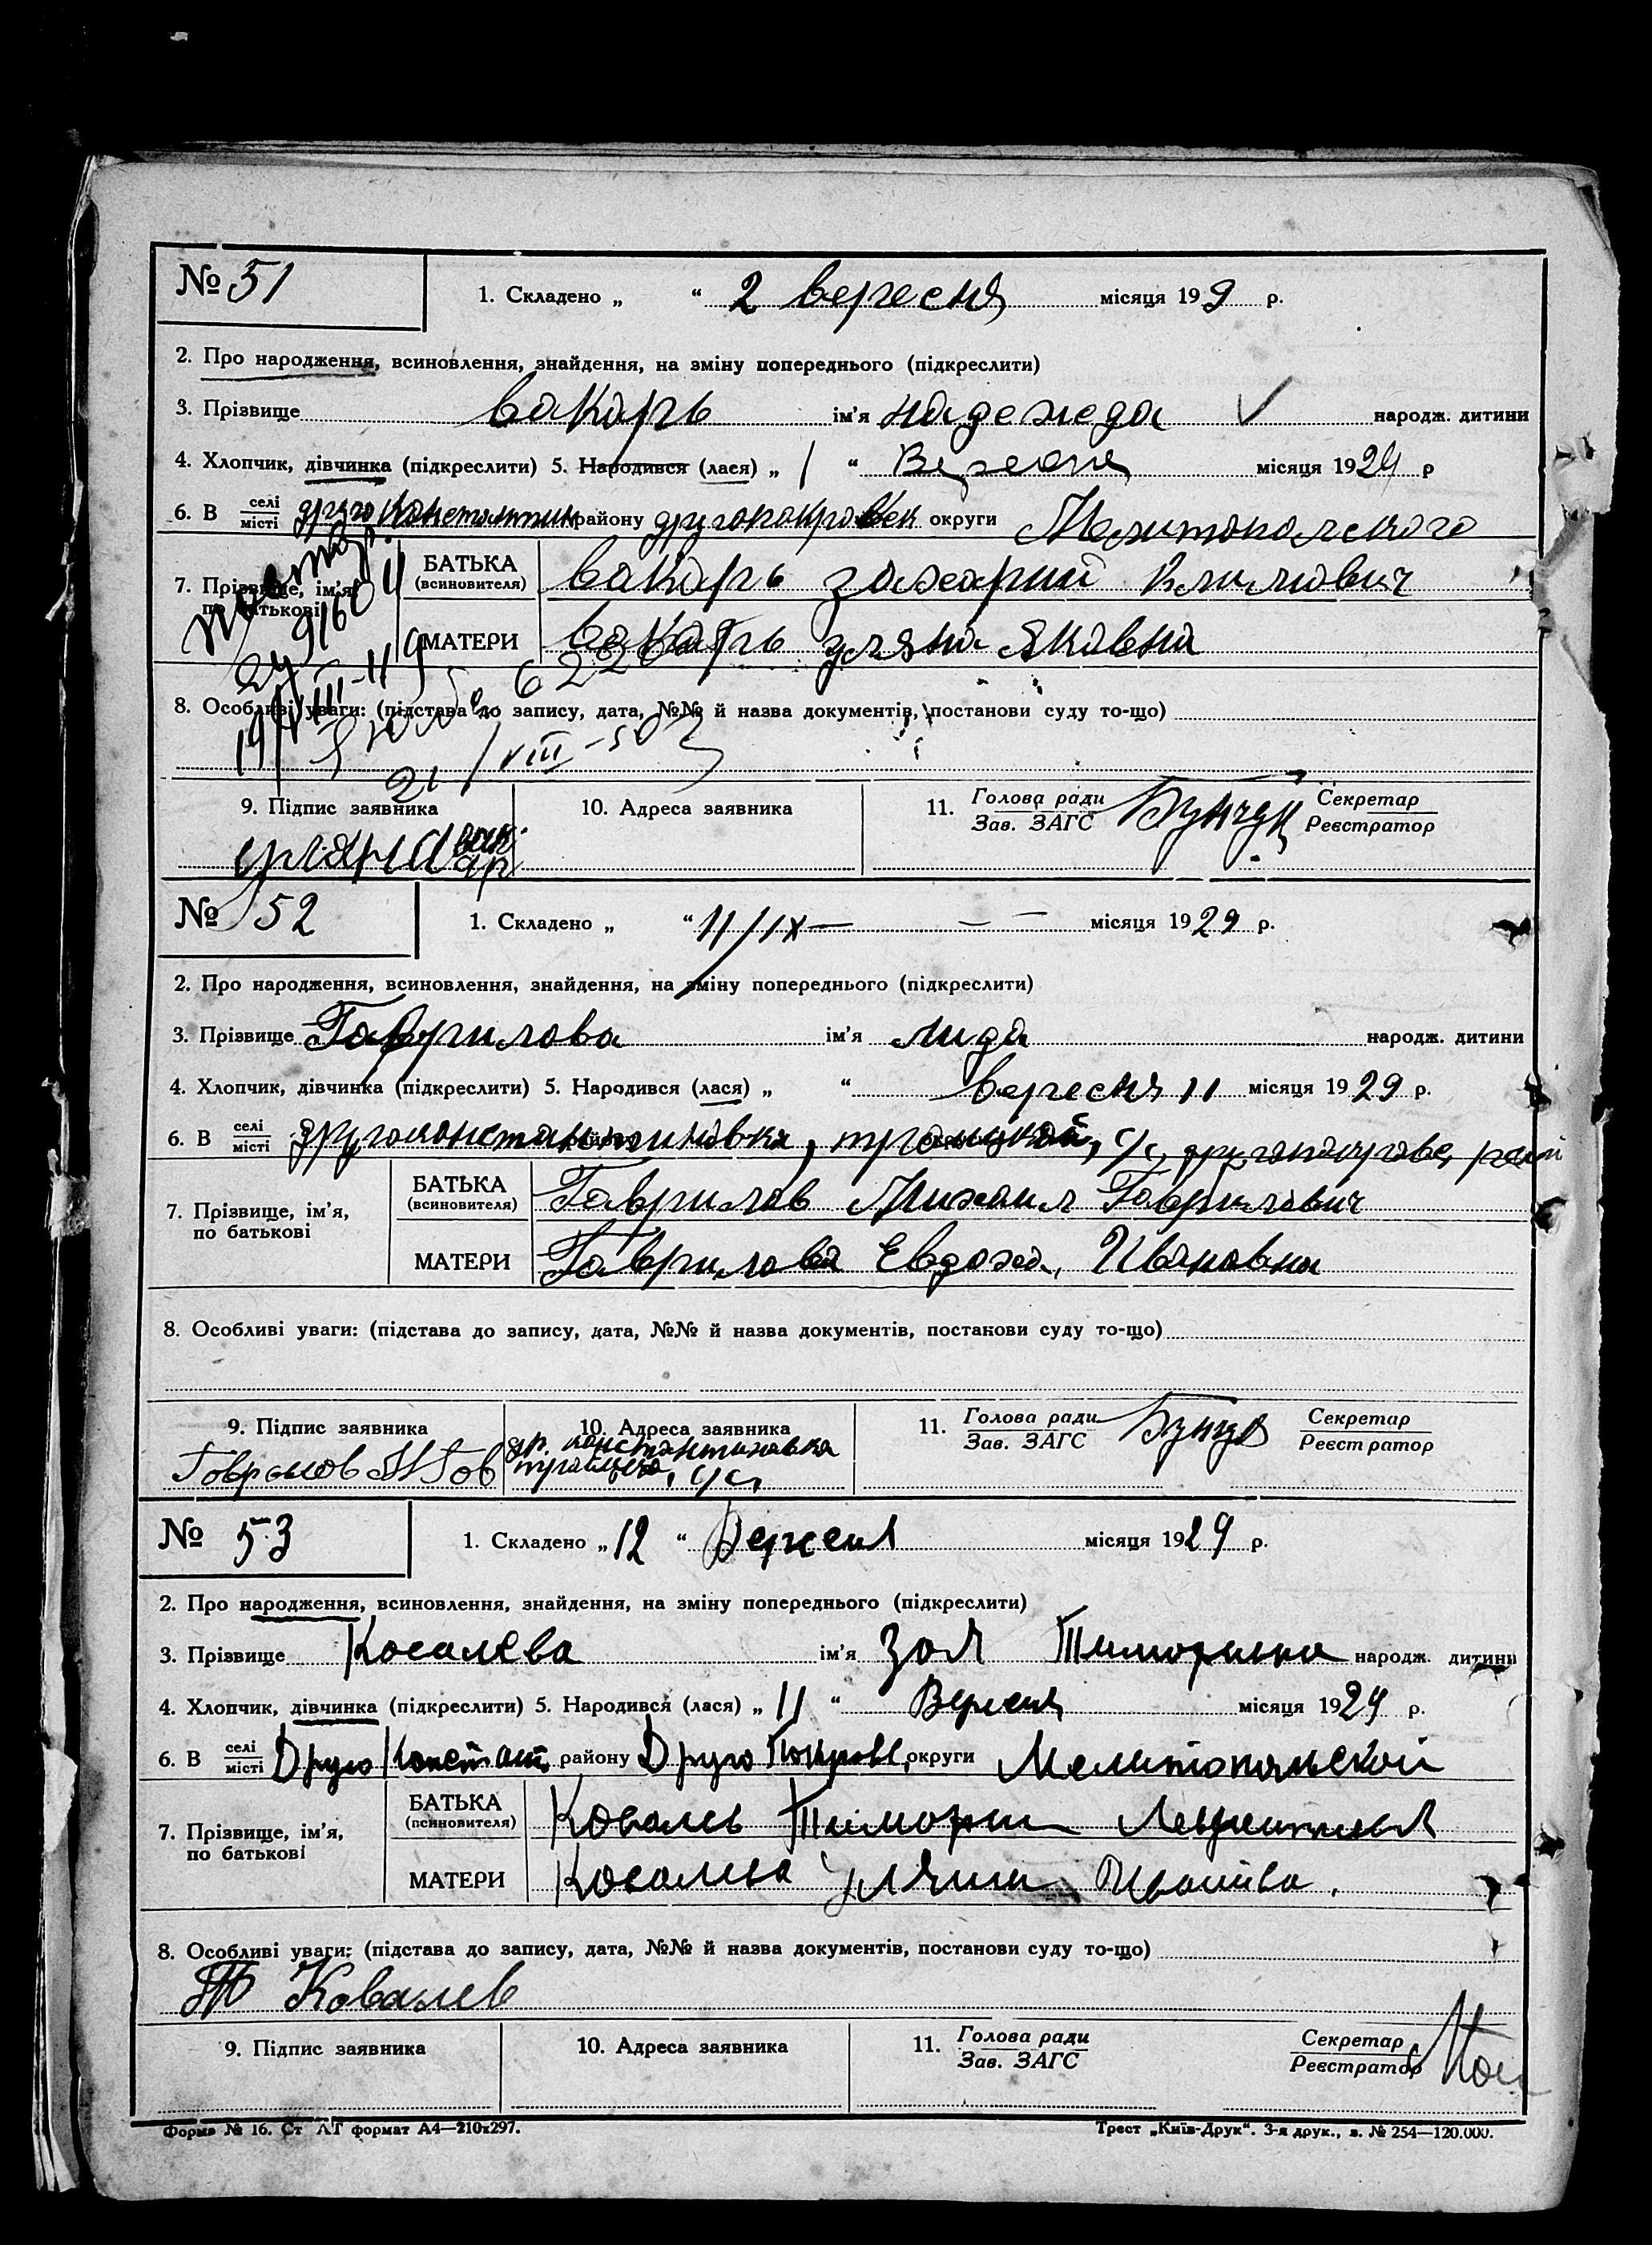 № 51 1. Складено „ “ 2 вересня місяця 19 9 р.
2. Про народження, всиновлення, знайдення, на зміну попереднього (підкреслити)
3. Прізвище Вакарь ім'я надежеда народж. дитини
4. Хлопчик, дівчинка (підкреслити) 5. Народився (лася) „ 1 “ Вересня місяця 1929 р
6. В селі місті друго Константин району другопокровск округи Мелитополского
7. Прізвище, ім'я, по батькові
БАТЬКА (всиновителя) Вакарь захарий Климович
МАТЕРИ Вакарь уляна Яковна
8. Особливі уваги: (підстава до запису, дата, №№ й назва документів, постанови суду то-що)
21/VIII-50
9. Підпис заявника 10. Адреса заявника 11. Голова ради Зав. ЗАГС Бунчук Секретар Реєстратор
уляна вакар
№ 52 1. Складено „ “ 11/IX — — — місяця 1929 р.
2. Про народження, всиновлення, знайдення, на зміну попереднього (підкреслити)
3. Прізвище Гаврилова ім'я лида народж. дитини
4. Хлопчик, дівчинка (підкреслити) 5. Народився (лася) „ “ вересня 11 місяця 1929 р.
6. В селі місті другоконстантиновка, троицкой, с/с,
7. Прізвище, ім'я, по батькові
БАТЬКА (всиновителя) Гаврилов Михаил Гаврилович
МАТЕРИ Гаврилова Евдохед. Ивановна
8. Особливі уваги: (підстава до запису, дата, №№ й назва документів, постанови суду то-що)
9. Підпис заявника 10. Адреса заявника 11. Голова ради Зав. ЗАГС Секретар Реєстратор
др. константиновка
с/с,
№ 53 1. Складено „ 12 “ Вересня місяця 1929 р.
2. Про народження, всиновлення, знайдення, на зміну попереднього (підкреслити)
3. Прізвище Ковалева ім'я Зоя народж. дитини
4. Хлопчик, дівчинка (підкреслити) 5. Народився (лася) „ 11 “ Вересня місяця 1929 р.
6. В селі місті Друго Констант. району Друго Покровс. округи Мелитопольской
7. Прізвище, ім'я, по батькові
БАТЬКА (всиновителя) Ковалев Тимофии
МАТЕРИ Ковалева Уляна
8. Особливі уваги: (підстава до запису, дата, №№ й назва документів, постанови суду то-що)
Ковалев
9. Підпис заявника 10. Адреса заявника 11. Голова ради Зав. ЗАГС Секретар Реєстратор
Форма № 16. Ст АТ формат А4—210х297. Трест „Київ-Друк“. 3-я друк., з. № 254—120.000.